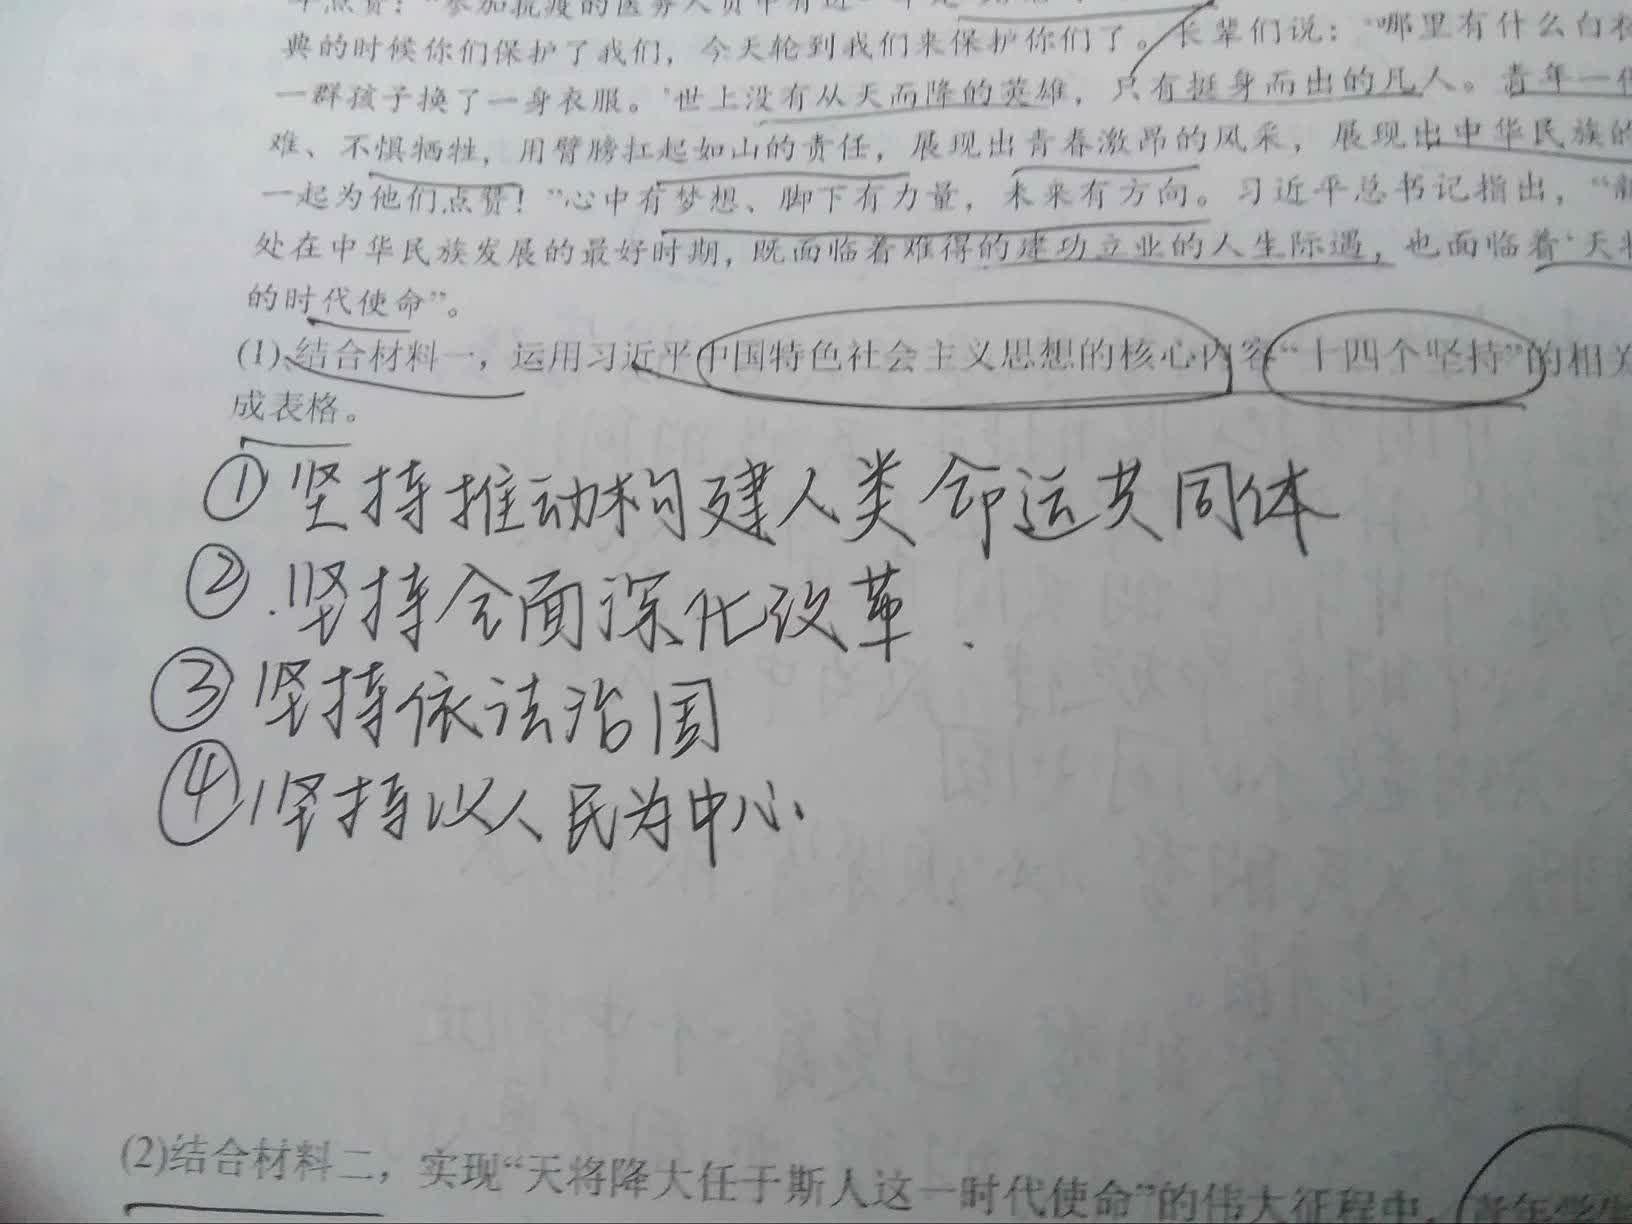 年点赞：“参加抗疫的医务人员中有近一半是
典的时候你们保护了我们，今天轮到我们来保护你们了。长辈们说：‘哪里有什么白衣
一群孩子换了一身衣服。’世上没有从天而降的英雄，只有挺身而出的凡人。青年一代
难、不惧牺牲，用臂膀扛起如山的责任，展现出青春激昂的风采，展现出中华民族的
一起为他们点赞！”心中有梦想、脚下有力量，未来有方向。习近平总书记指出，“新
处在中华民族发展的最好时期，既面临着难得的建功立业的人生际遇，也面临着‘天将
的时代使命”。
(1)结合材料一，运用习近平中国特色社会主义思想的核心内容“十四个坚持”的相关
成表格。
①坚持推动构建人类命运共同体
②.坚持全面深化改革.
③坚持依法治国
④坚持以人民为中心.
(2)结合材料二，实现“天将降大任于斯人这一时代使命”的伟大征程中，青年学生